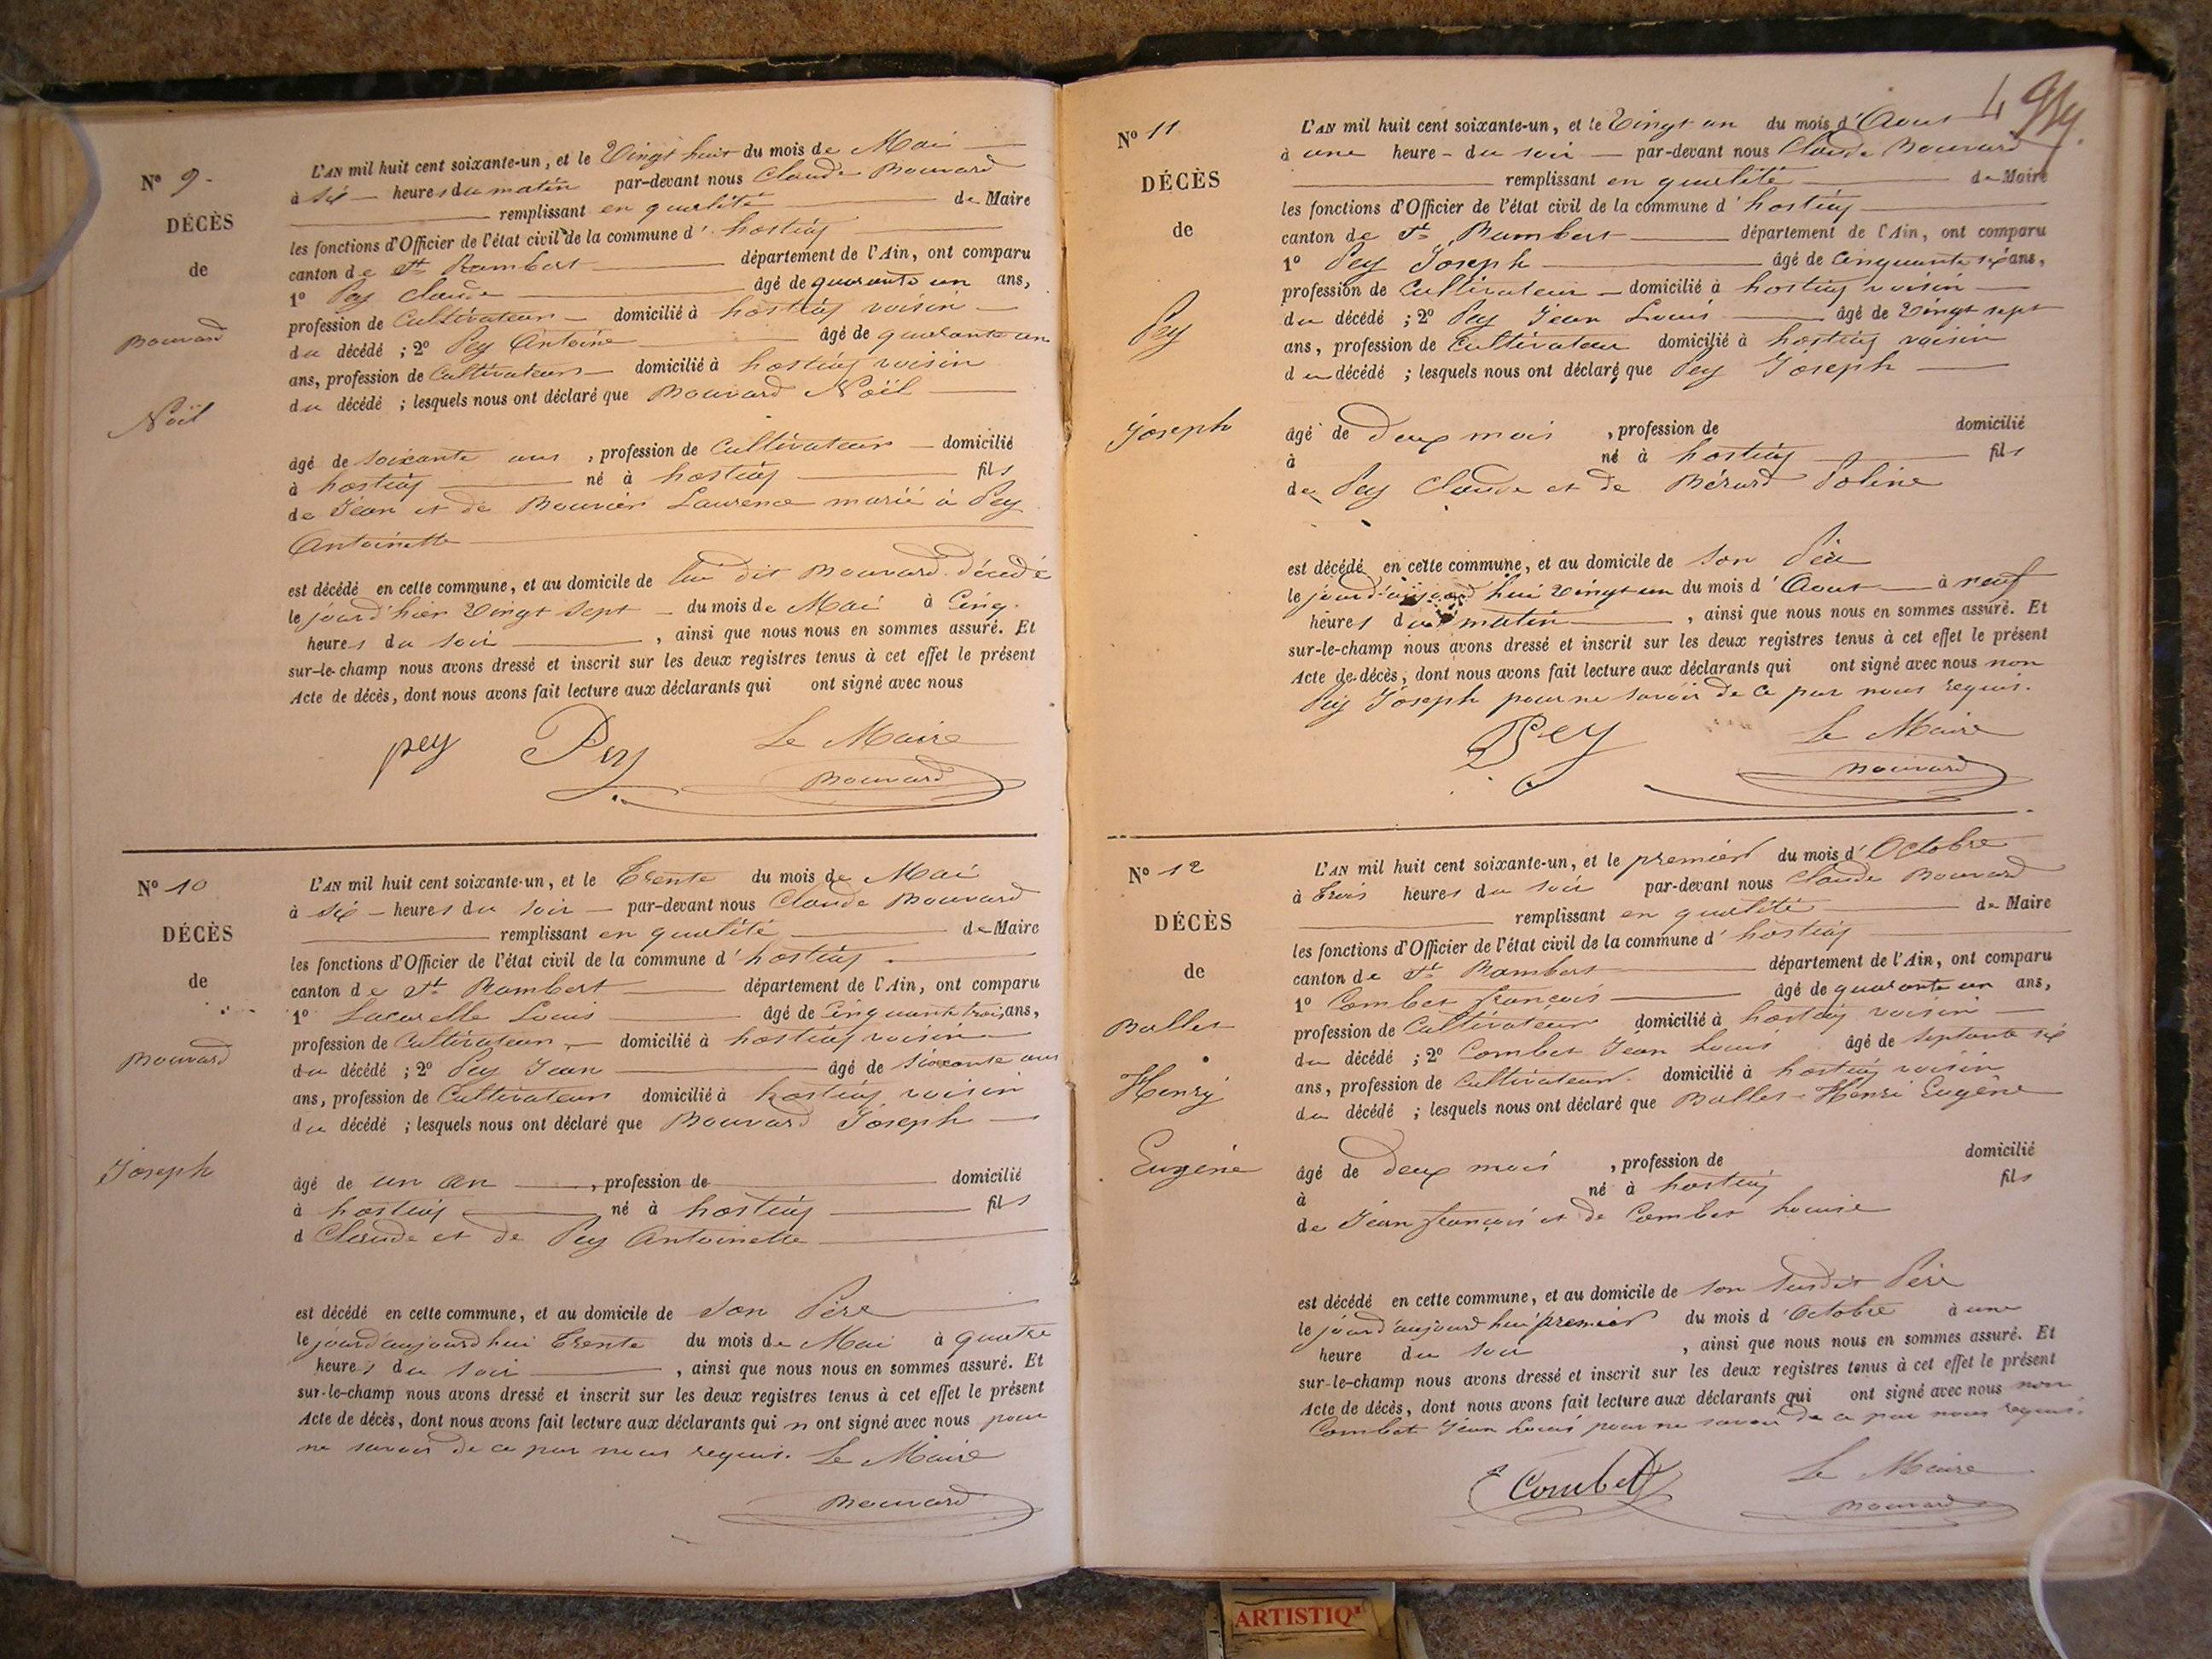 Nº 9.
DÉCÈS
de
Bouvard
Noël
L'AN mil huit cent soixante-un, et le Vingt huit du mois de Mai
à six heures du matin par-devant nous Claude Bouvard
remplissant en qualité de Maire
les fonctions d'Officier de l'état civil de la commune d' hostiaz
canton de St Rambert département de l'Ain, ont comparu
1º Pey Claude âgé de quarante un ans,
profession de Cultivateur domicilié à hostiaz voisin
du décédé ; 2º Pey Antoine âgé de quarante un
ans, profession de Cultivateur domicilié à hostiaz voisin
du décédé ; lesquels nous ont déclaré que Bouvard Noël
âgé de soixante ans , profession de Cultivateur domicilié
à hostiaz né à hostiaz fils
de Jean et de Bouvier Laurence marié à Pey
Antoinette
est décédé en cette commune, et au domicile de lui dit Bouvard. décédé
le jourd'hier Vingt sept du mois de Mai à Cinq
heures du soir , ainsi que nous nous en sommes assuré. Et
sur-le-champ nous avons dressé et inscrit sur les deux registres tenus à cet effet le présent
Acte de décès, dont nous avons fait lecture aux déclarants qui ont signé avec nous
pey Pey Le Maire
Bouvard
Nº 10
DÉCÈS
de
Bouvard
Joseph
L'AN mil huit cent soixante-un, et le Trente du mois de Mai
à six heures du soir par-devant nous Claude Bouvard
remplissant en qualité de Maire
les fonctions d'Officier de l'état civil de la commune d' hostiaz
canton de St Rambert département de l'Ain, ont comparu
1º Lacarelle Louis âgé de Cinquante trois ans,
profession de Cultivateur domicilié à hostiaz voisin
du décédé ; 2º Pey Jean âgé de soixante ans
ans, profession de Cultivateur domicilié à hostiaz voisin
du décédé ; lesquels nous ont déclaré que Bouvard Joseph
âgé de un an , profession de domicilié
à hostiaz né à hostiaz fils
d Claude et de Pey Antoinette
est décédé en cette commune, et au domicile de son Père
le jourd'aujourd'hui Trente du mois de Mai à quatre
heures du soir , ainsi que nous nous en sommes assuré. Et
sur-le-champ nous avons dressé et inscrit sur les deux registres tenus à cet effet le présent
Acte de décès, dont nous avons fait lecture aux déclarants qui n ont signé avec nous pour
ne savoir de ce par nous requis. Le Maire
Bouvard
4
Nº 11
DÉCÈS
de
Pey
Joseph
L'AN mil huit cent soixante-un, et le Vingt un du mois d'Aout
à une heure du soir par-devant nous Claude Bouvard
remplissant en qualité de Maire
les fonctions d'Officier de l'état civil de la commune d' hostiaz
canton de St Rambert département de l'Ain, ont comparu
1º Pey Joseph âgé de Cinquante six ans,
profession de Cultivateur domicilié à hostiaz voisin
du décédé ; 2º Pey Jean Louis âgé de Vingt sept
ans, profession de Cultivateur domicilié à hostiaz voisin
du décédé ; lesquels nous ont déclaré que Pey Joseph
âgé de deux mois , profession de domicilié
à né à hostiaz fils
de Pey Claude et de Bérard Poline
est décédé en cette commune, et au domicile de son Père
le jourd'aujourd'hui Vingt un du mois d' Aout à neuf
heures du matin , ainsi que nous nous en sommes assuré. Et
sur-le-champ nous avons dressé et inscrit sur les deux registres tenus à cet effet le présent
Acte de décès, dont nous avons fait lecture aux déclarants qui ont signé avec nous non
Pey Joseph pour ne savoir de ce par nous requis.
Pey Le Maire
Bouvard
Nº 12
DÉCÈS
de
Ballet
Henry
Eugène
L'AN mil huit cent soixante-un, et le premier du mois d' Octobre
à trois heures du soir par-devant nous Claude Bouvard
remplissant en qualité de Maire
les fonctions d'Officier de l'état civil de la commune d' hostiaz
canton de St Rambert département de l'Ain, ont comparu
1º Combet françois âgé de quarante un ans,
profession de Cultivateur domicilié à hostiaz voisin
du décédé ; 2º Combet Jean Louis âgé de septante six
ans, profession de Cultivateur domicilié à hostiaz voisin
du décédé ; lesquels nous ont déclaré que Ballet Henri Eugène
âgé de deux mois , profession de domicilié
à né à hostiaz fils
de Jean françois et de Combet Louise
est décédé en cette commune, et au domicile de son susdit Père
le jourd'aujourd'hui premier du mois d' Octobre à une
heure du soir , ainsi que nous nous en sommes assuré. Et
sur-le-champ nous avons dressé et inscrit sur les deux registres tenus à cet effet le présent
Acte de décès, dont nous avons fait lecture aux déclarants qui ont signé avec nous non
Combet Jean Louis pour ne savoir de ce par nous requis.
Combet Le Maire
Bouvard
ARTISTIQ